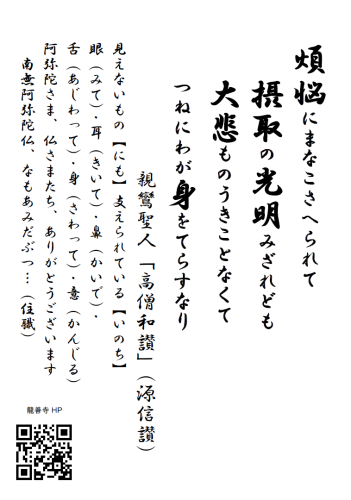 煩悩にまなこさへられて
摂取の光明みざれども
大悲ものうきことなくて
つねにわが身をてらすなり
親鸞聖人「高僧和讃」(源信讃)
見えないもの【にも】支えられている【いのち】
眼(みて)・耳(きいて)・鼻(かいで)・
舌(あじわって)・身(さわって)・意(かんじる)
阿弥陀さま、仏さまたち、ありがとうございます
南無阿弥陀仏、なもあみだぶつ…(住職)
龍善寺 HP